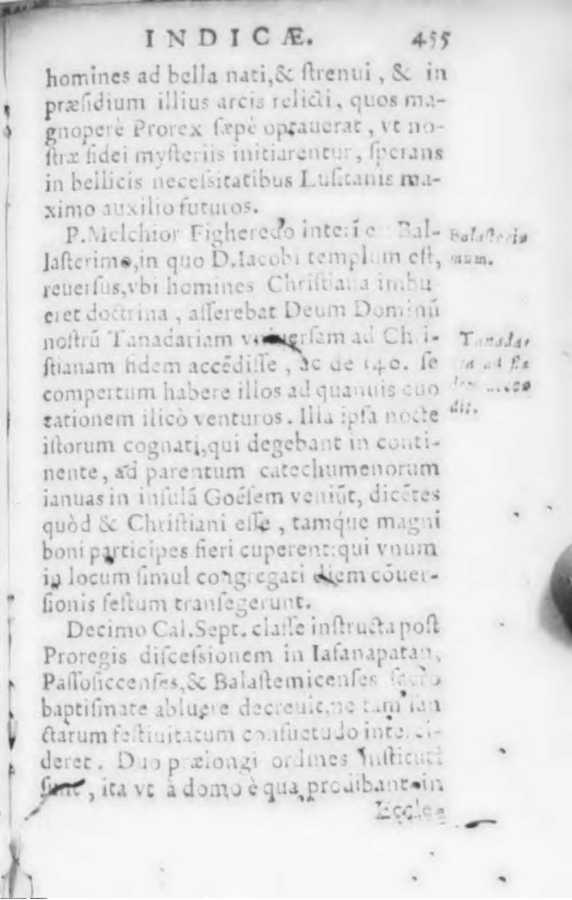 INDICÆ. 455
homines ad bella nati,& ſtrenui, & in
præſidium illius arcis relicti, quos ma-
gnoperè Prorex ſæpè optauerat, vt no-
ſtræ fidei myſteriis initiarentur, ſperans
in bellicis neceſsitatibus Luſitanis ma-
ximo auxilio futuros.
P.Melchior Figheredo interī Bal-
laſterimo,in quo D.Iacobi templum eſt,
reuerſus,vbi homines Chriſtiana imbu
eret doctrina, aſſerebat Deum Dominū
noſtrū Tanadariam vniuerſam ad Chri-
ſtianam fidem accēdiſſe, ac de 140. ſe
compertum habere illos ad quamuis cuo
tationem ilicò venturos. Illa ipſa nocte
iſtorum cognati,qui degebant in conti-
nente, ad parentum catechumenorum
ianuas in inſulā Goēſem veniūt, dicētes
quòd & Chriſtiani eſſe, tamque magni
boni participes fieri cuperent:qui vnum
in locum ſimul congregati diem cōuer-
ſionis feſtum tranſegerunt.
Decimo Cal.Sept. claſſe inſtructa poſt
Proregis diſceſsionem in Iaſanapatan,
Paſſoſiccenſes,& Balaſtemicenſes ſacro
baptiſmate abluere decreuit,ne tam ſan
ctarum feſtiuitatum conſuetudo interci-
deret. Duo prælongi ordines inſtituti
ſunt, ita vt à domo è qua prodibant in
Eccle-
Balaſteri
mum.
Tanadar
ad fi
dit.